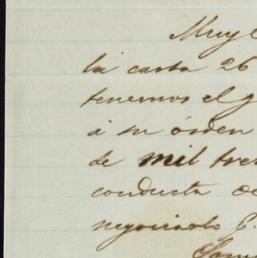 Muy
la carta 26
tenemos el g
á su órden
de mil tre
conducta de
negociado